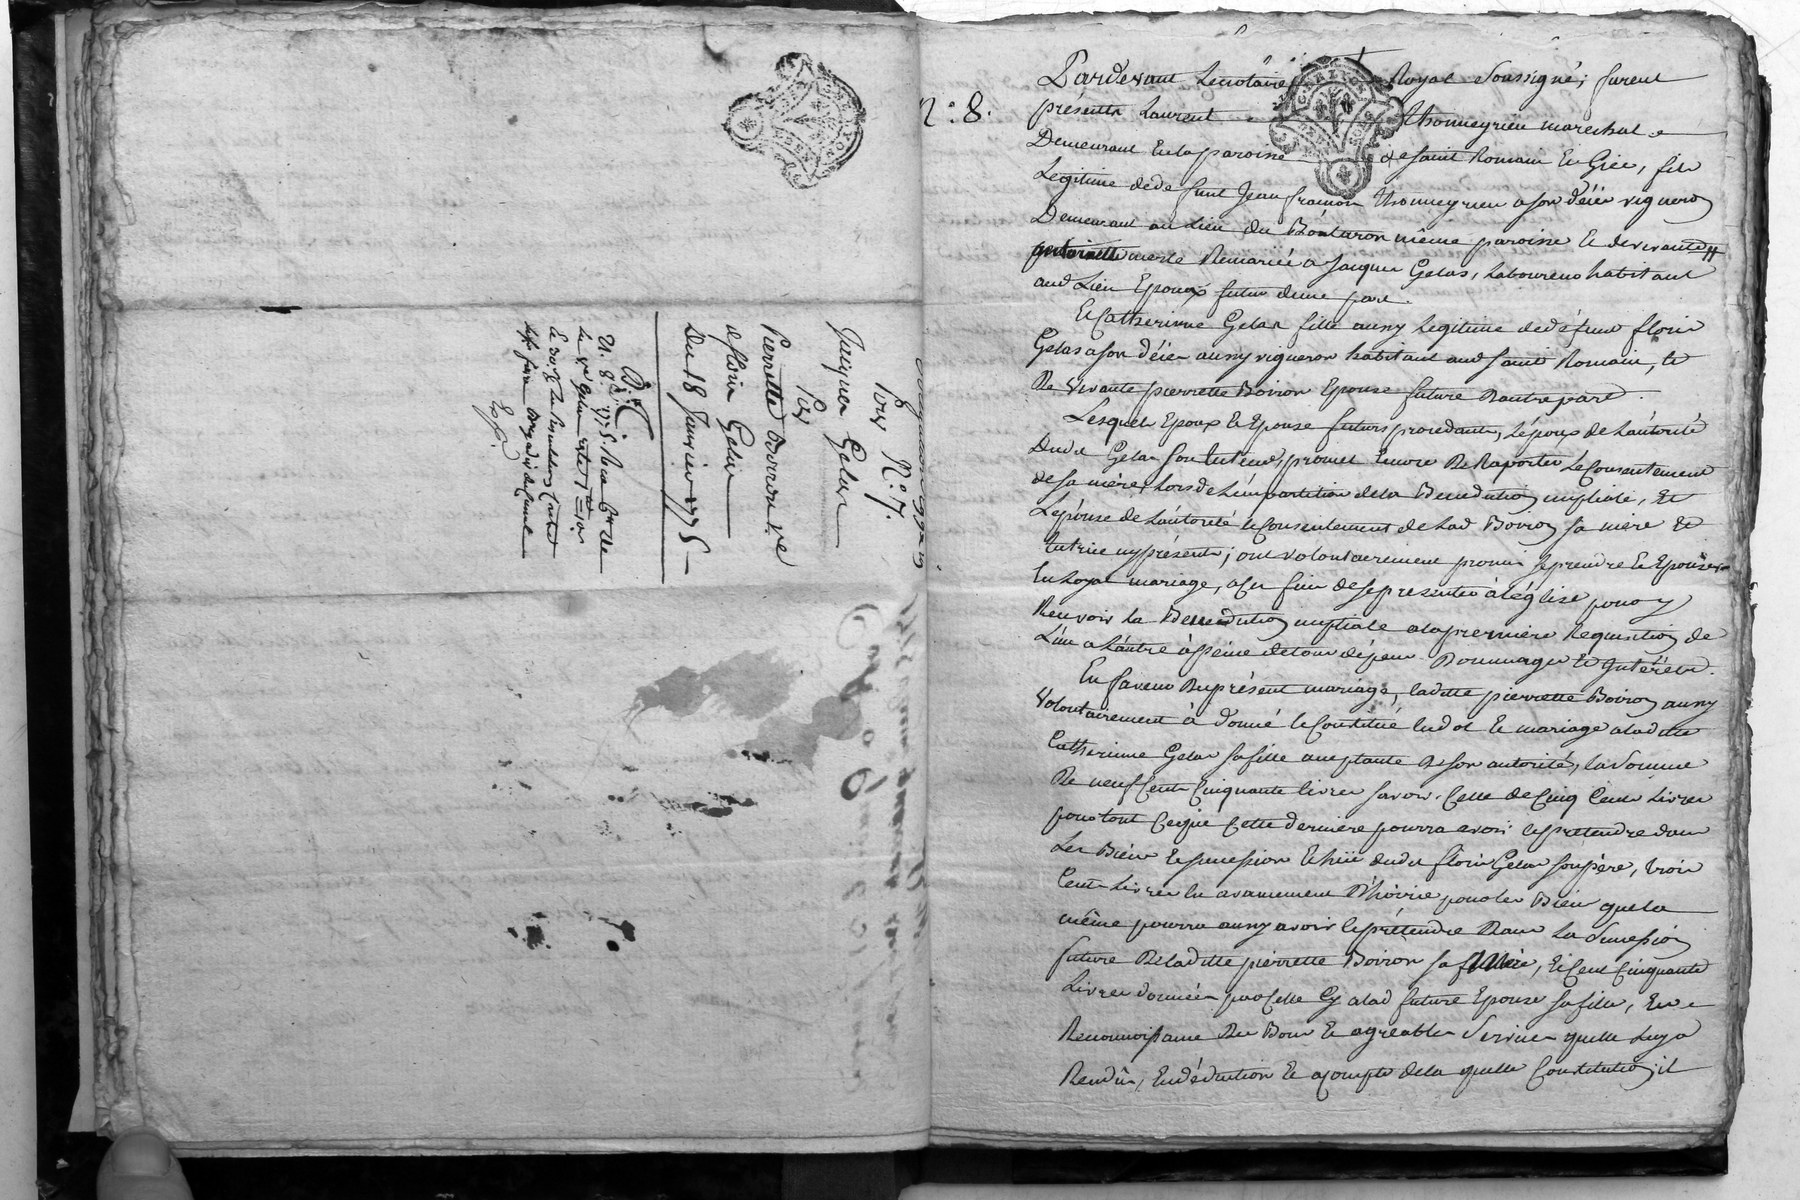 Obligation 99 #
Pour N.° 7.
Jacques Gelas
Par
Pierrette Boiron ve
de floris Gelas
Du 18 Janvier 1775
N.° 8.
Pardevant Le notaire Royal Soussigné; furent
présents Laurent Thonneyrieu marechal
Demeurant En la paroisse de saint Romain En Giee, fils
Legitime de defunt Jean francois Thonneyrieu a son déces vigneron
Demeurant au Lieu du Bouturon même paroisse Et de vivante
antoinette merle Remariée a Jacques Gelas, Laboureur habitant
aud Lieu Epoux futur dune part.
Et Catherinne Gelas fille aussy legitime de défunt floris
Gelas a son déces aussy vigneron habitant aud saint Romain, Et
De vivante pierrette Boiron Epouse future Dautre part.
Lesquels Epoux Et Epouse futurs procedants, Lépoux de Lautorité
Dudit Gelas promet Encore De Raporter Le Consentement
de sa mère, Lors de Limpartition de la Benediction nuptiale, Et
Lépouse de Lautorité Et Consentement de Lad Boiron sa mere Et
tutrice icy présente; ont volontairement promis se prendre Et Epouser
En Loyal mariage, a Ces fins de se presenter à léglise pour y
Recevoir La Benediction nuptiale a la premiere Requisition de
Lun a Lautre à peine de tous dépens Dommages Et Intérets.
En faveur Du présent mariage, ladite pierrette Boiron aussy
volontairement à donné Et Constitué En dot Et mariage a ladite
Catherinne Gelas sa fille aceptante De son autorité, La Somme
De neuf Cents Cinquante livres savoir, Celle de Cinq Cents Livres
pour tout Ce que Cette derniere pourra avoir Et prétendre dans
Les Biens Et succession dudit floris Gelas son père, trois
Cents Livres En avancement D'hoirie pour les Biens que la
même pourra aussy avoir Et prétendre Dans La Succession
future De ladite pierrette Boiron sa mère, Et Cent Cinquante
Livres données par Celle Cy a lad future Epouse sa fille, En
Reconnoissance Des Bons Et agréables Services quelle Luy a
Rendûs, En déduction Et acompte de la quelle Constitution, il